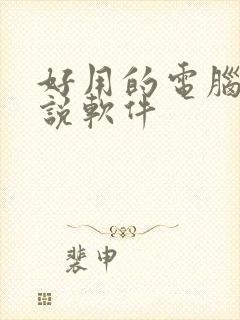 好用的電腦
說軟件
裴申